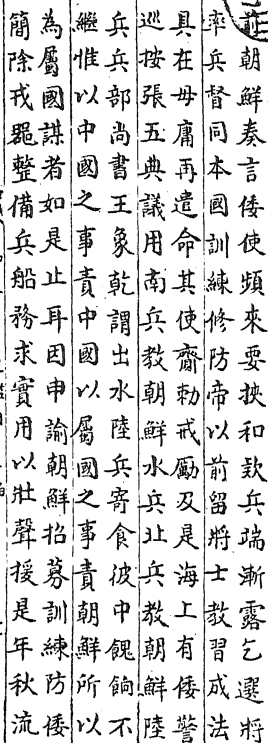 前朝鮮奏言倭使頻來要挾和款兵端漸露乞選將
率兵督同本國訓練修防帝以前留將士教習成法
具在毋庸再遣命其使齎勅戒勵及是海上有倭警
巡按張五典議用南兵教朝鮮水兵北兵教朝鮮陸
兵兵部尚書王象乾謂出水陸兵寄食彼中餽餉不
繼惟以中國之事責中國以屬國之事責朝鮮所以
為屬國謀者如是止耳因申諭朝鮮招募訓練防倭
簡除戎器整備兵船務求實用以壯聲援是年秋流